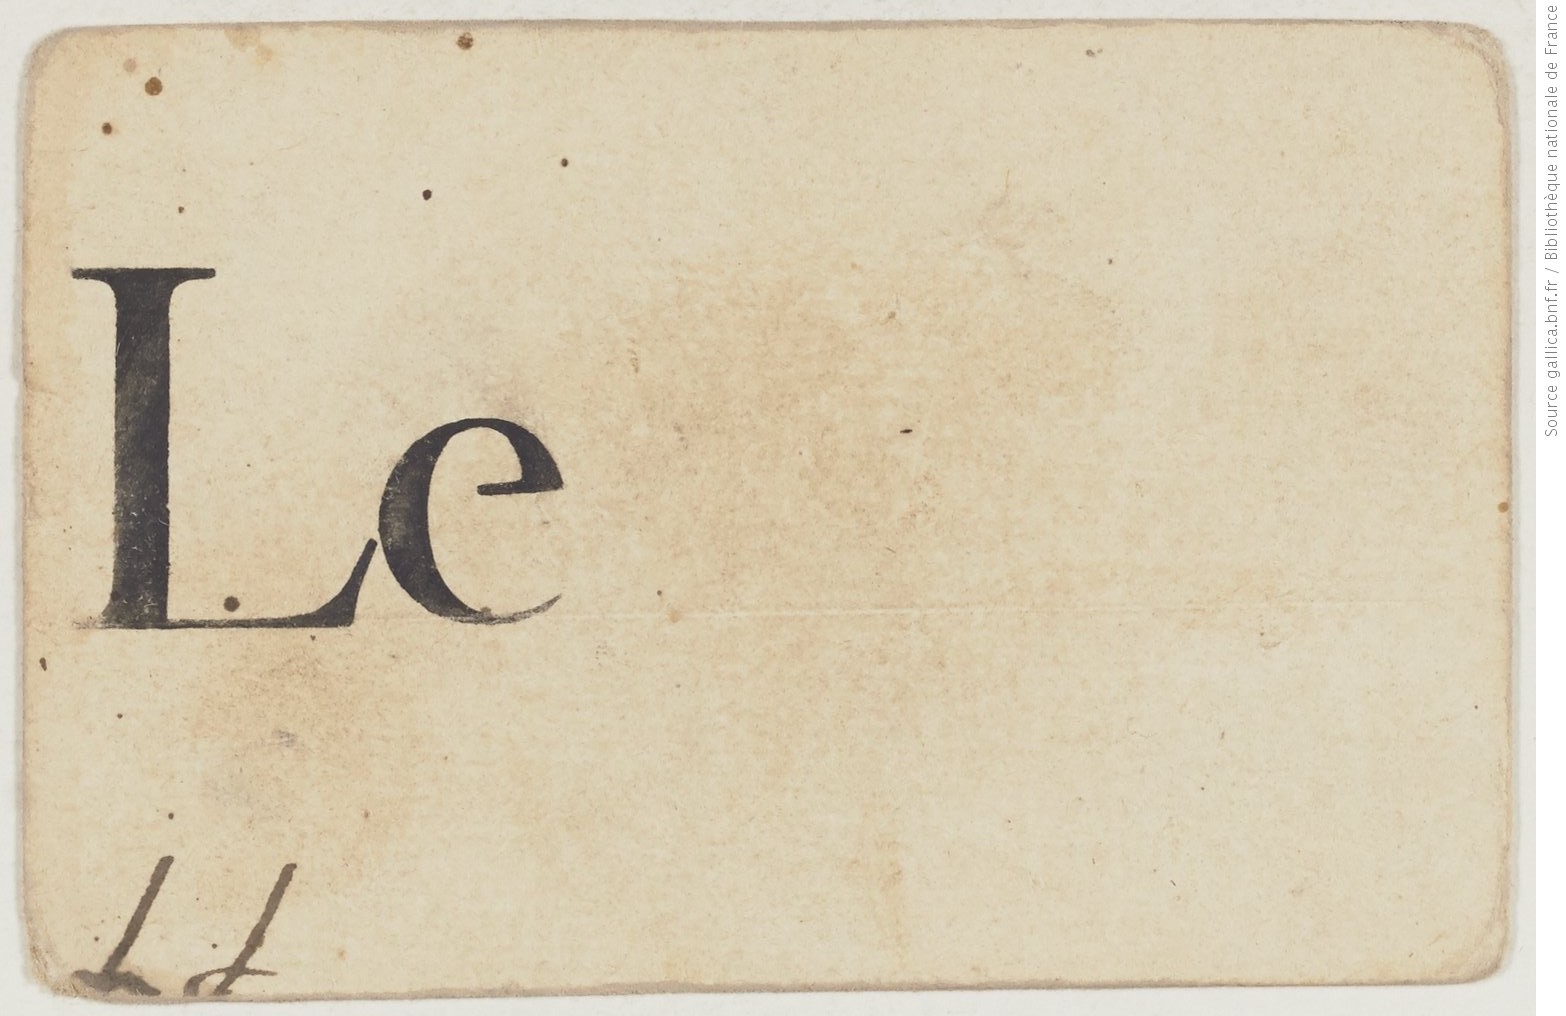 Le
Source gallica.bnf.fr / Bibliothèque nationale de France